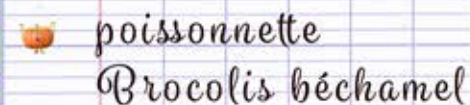 poissonnette
Brocolis béchamel